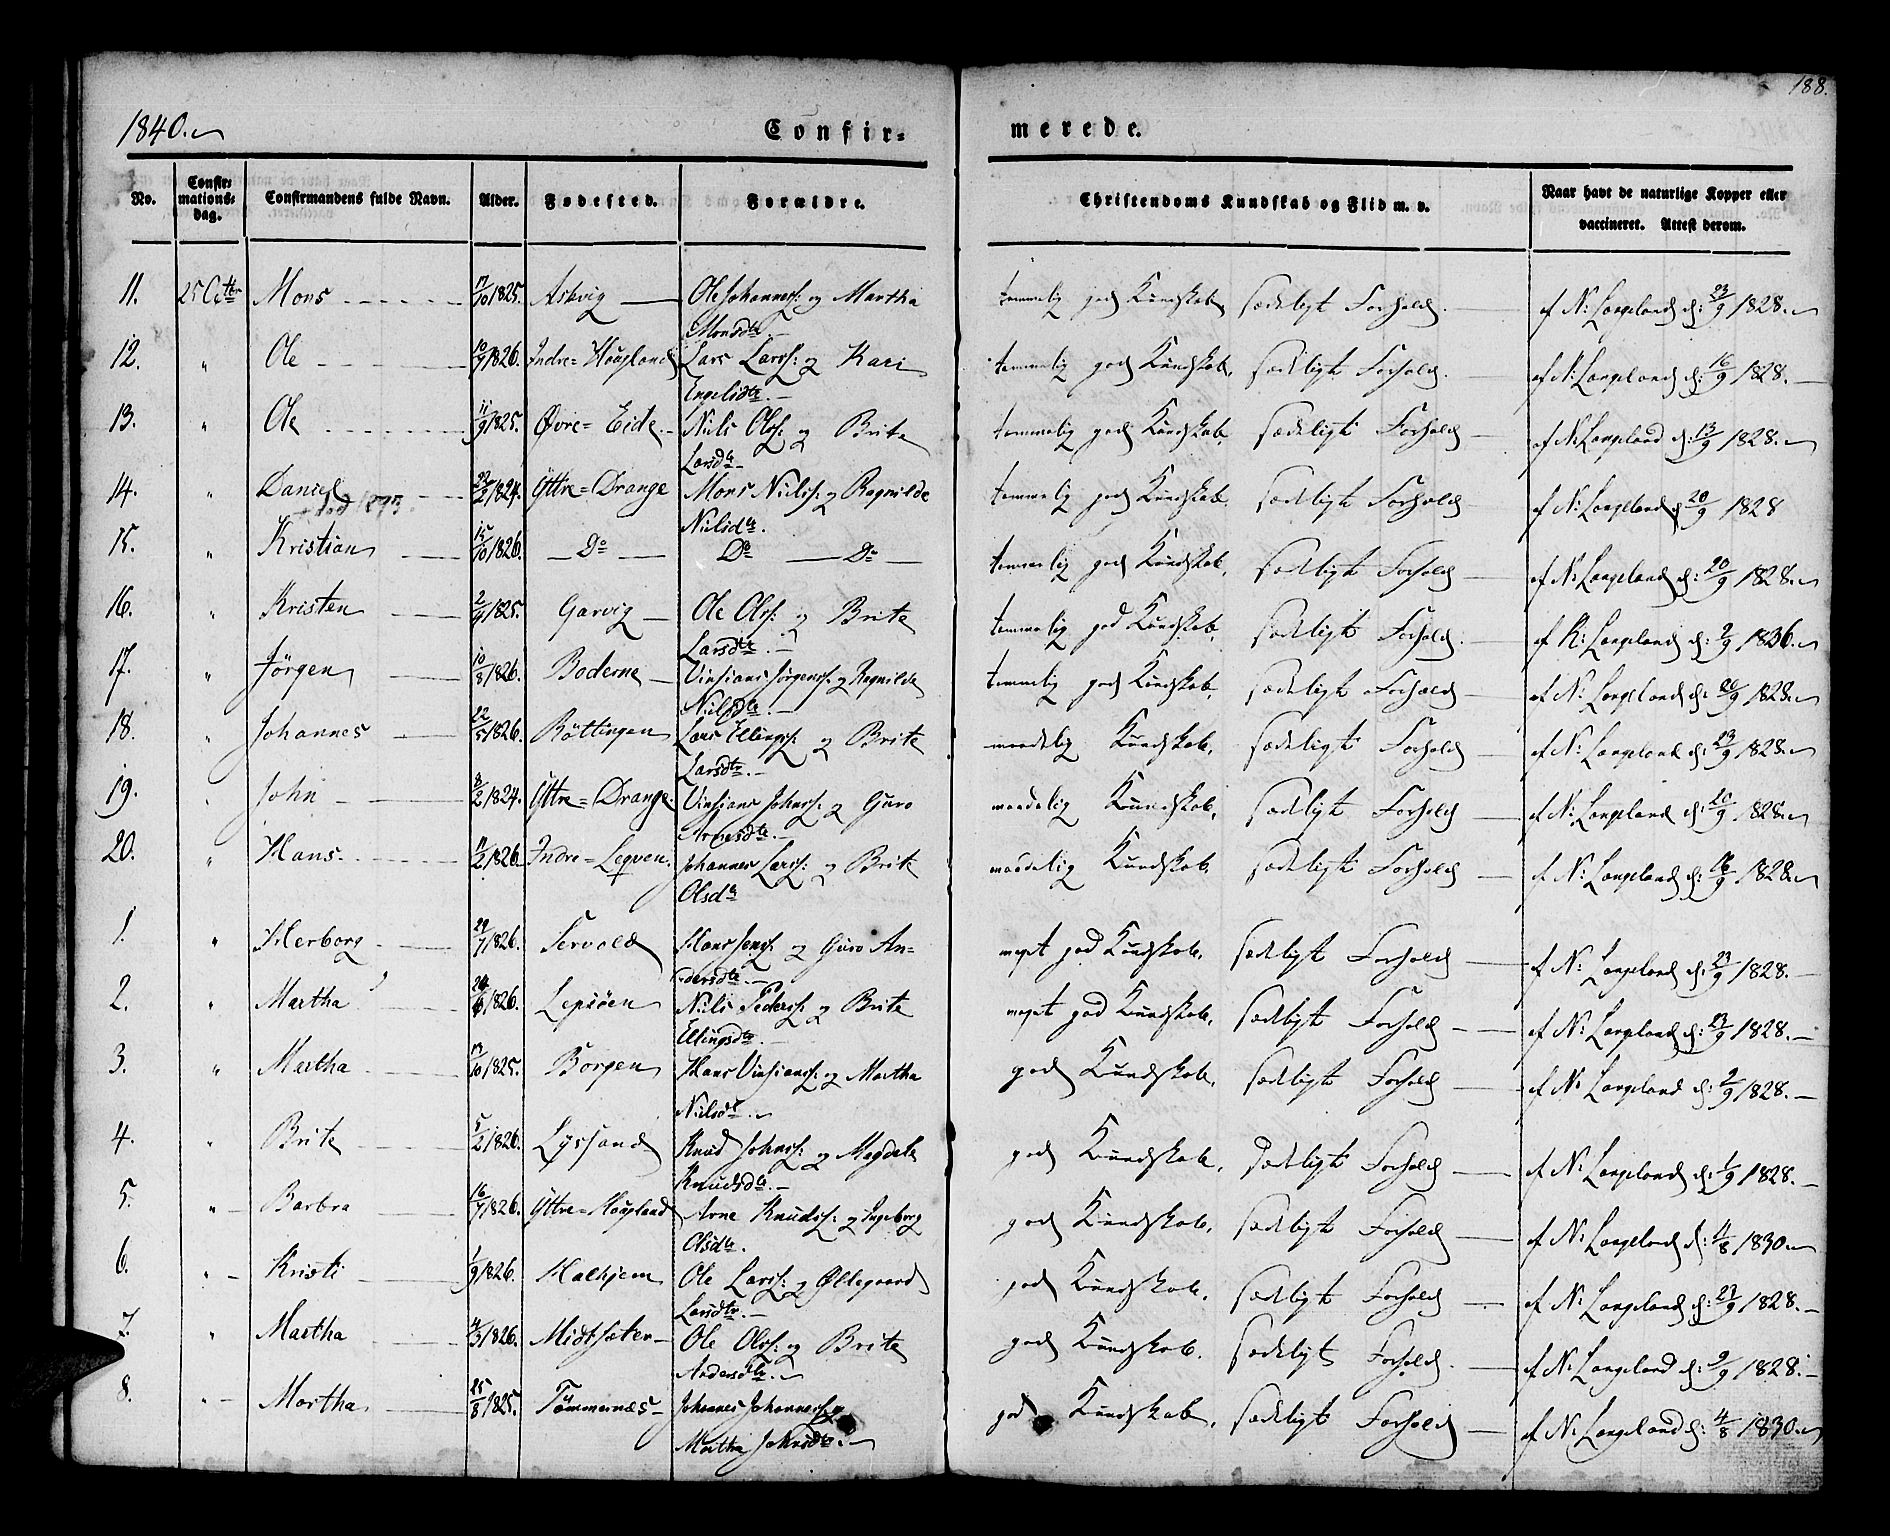 188.
1840.
Confir- merede.
No. Confirmations-dag. Confirmandens fulde Navn. Alder. Fødested. Forældre. Christendoms Kundskab og Flid m. v. Naar havt de naturlige Kopper eller vaccineret. Attest derom.
11. 25 Octbr Mons 17/10 1825. Askvig Ole Johanness: og Martha Monsdtr temmelig god Kundskab, sædeligt Forhold. af N: Langeland d: 23/9 1828.
12. " Ole 10/9 1826. Indre-Hougland Lars Larss: og Kari Engelsdtr temmelig god Kundskab, sædeligt Forhold. af N: Langeland d: 16/9 1828.
13. " Ole 11/9 1825. Øvre-Eide Niels Olss: og Brite Larsdtr temmelig god Kundskab, sædeligt Forhold af N: Langeland d: 13/9 1828.
14. " Daniel 22/2 1824. Yttre-Drange Mons Nielss: og Ragnilde Nielsdtr temmelig god Kundskab, sædeligt Forhold af N: Langeland d: 20/9 1828
15. " Kristian 15/10 1826. Do Do Do temmelig god Kundskab, sædeligt Forhold af N: Langeland d: 20/9 1828.
16. " Kristen 2/9 1825. Garvig Ole Olss: og Brite Larsdtr temmelig god Kundskab, sædeligt Forhold. af R: Langeland d: 2/9 1836.
17. " Jörgen 10/8 1826. Boderne Vinsians Jörgenss: og Ragnilde Nielsdtr temmelig god Kundskab, sædeligt Forhold af N: Langeland d: 26/9 1828.
18. " Johannes 22/5 1826. Röttingen Lars Ellingss: og Brite Larsdtr maadelig Kundskab, sædeligt Forhold af N: Langeland d: 29/9 1828.
19. " John 8/2 1824. Yttre-Drange Vinsians Johnss: og Guro Arnesdtr maadelig Kundskab, sædeligt Forhold af N: Langeland d: 20/9 1828.
20. " Hans 11/2 1826. Indre-Leqven Johannes Larss: og Brite Olsdtr maadelig Kundskab. sædeligt Forhold af N: Langeland d: 16/9 1828.
1. " Herborg 29/7 1826. Servold Hans Jenss: og Guro Andersdtr meget god Kundskab, sædeligt Forhold af N: Langeland d: 23/9 1828.
2. " Martha 24/6 1826. Lepsöen Niels Pederss: og Brite Ellingsdtr meget god Kundskab, sædeligt Forhold af N: Langeland d: 23/9 1828.
3. " Martha 17/10 1825. Borgen Hans Vinsianss: og Martha Nielsdtr god Kundskab, sædeligt Forhold af N: Langeland d: 2/9 1828.
4. " Brite 5/2 1826. Lyssand Knud Johnss: og Magdela Knudsdtr god Kundskab, sædeligt Forhold af N: Langeland d: 1/9 1828.
5. " Barbra 16/7 1826. Yttre-Hougland Arne Knudss: og Ingeborg Olsdtr. god Kundskab, sædeligt Forhold af N: Langeland d: 4/8 1830.
6. " Kristi 1/9 1826. Halhjem Ole Larss: og Øllegaard Larsdtr god Kundskab, sædeligt Forhold af N: Langeland d: 27/9 1828.
7. " Martha 4/3 1826. Midtsæter Ole Olss: og Brite Andersdtr god Kundskab, sædeligt Forhold. af N: Langeland d: 9/9 1828.
8. " Martha 25/8 1825. Tömmernæs Johannes Johanness: og Martha Johnsdtr god Kundskab, sædeligt Forhold af N: Langeland d: 4/8 1830.